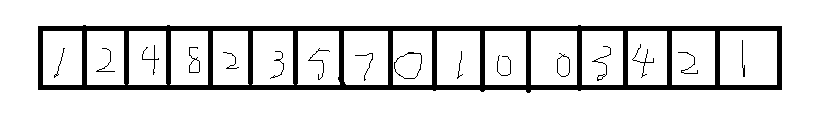 1 2 4 8 2 3 5 7 0 1 0 0 3 4 2 1